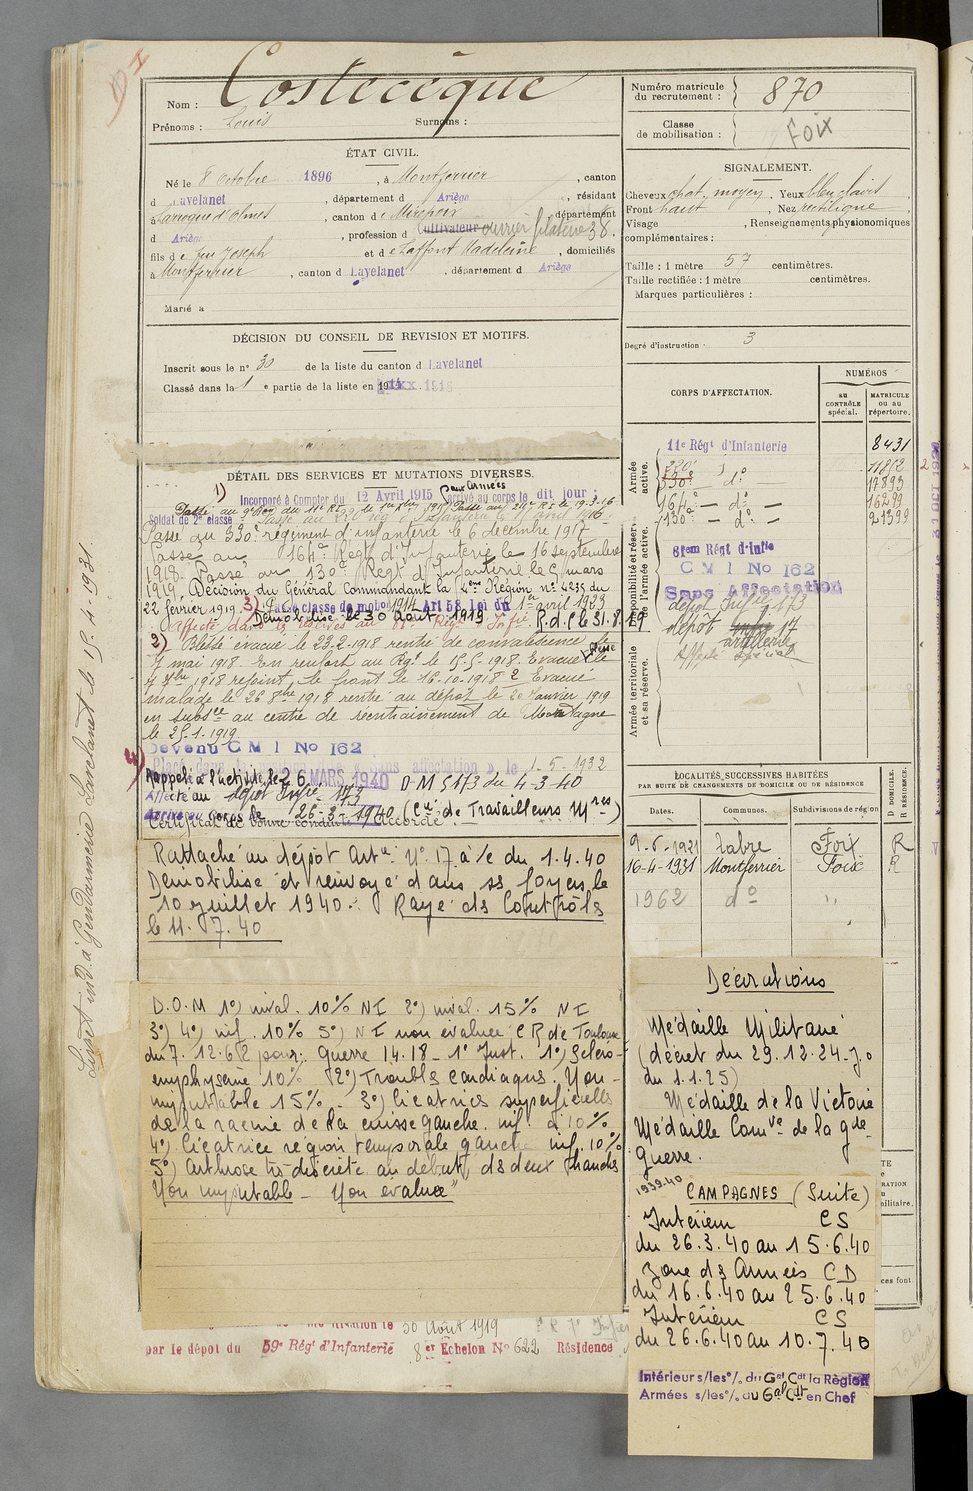 D I
Nom : Costecèque
Prénoms : Louis Surnoms :
Numéro matricule du recrutement : 870
Classe de mobilisation : Foix
ÉTAT CIVIL.
Né le 8 Octobre 1896, à Montferrier, canton
d Lavelanet, département d Ariège, résidant
à Laroque d'Olmes, canton de Mirepoix, département
d Ariège, profession d Cultivateur ouvrier filature 38.
fils de feu Joseph et de Laffont Madeleine, domiciliés
à Montferrier, canton d Lavelanet, département d Ariège
Marié à
SIGNALEMENT.
Cheveux chat. moyen, Yeux bleu clairs
Front haut, Nez rectiligne,
Visage , Renseignements physionomiques
complémentaires :
Taille : 1 mètre 57 centimètres.
Taille rectifiée : 1 mètre centimètres.
Marques particulières :
Degré d'instruction : 3
DÉCISION DU CONSEIL DE REVISION ET MOTIFS.
Inscrit sous le n° 30 de la liste du canton d Lavelanet
Classé dans la 1e partie de la liste en 1915
CORPS D'AFFECTATION.
NUMÉROS
au CONTRÔLE spécial.
MATRICULE ou au répertoire.
Armée active.
11e Régt d'Infanterie 8431
220e d° 11862
330e d° 17893
164e — d° — 16299
130e — d° — 21399
Disponibilité et réserve de l'armée active.
81em Régt d'Infie
C M I No 162
Sans Affectation
dépôt Infie 173
dépôt 17
artillerie
Affecté spécial
Armée territoriale et sa réserve.
DÉTAIL DES SERVICES ET MUTATIONS DIVERSES.
1) Incorporé à Compter du 12 Avril 1915 arrivé au corps le dit jour
Soldat de 2e classe
Passé au 330e régiment d'infanterie le 6 décembre 1917
Passé au 164e Régt d'Infanterie le 16 septembre
1918. Passé au 130e Régt d'Infanterie le 6 mars
1919, Décision du Général Commandant la 4ème Région n° 4235 du
22 février 1919. 3) classe de mobon 1914 Art 58 loi du 1er avril 1923
Démobilisé le 30 Août 1919 R.d.C le 31.8.19
2) Blessé évacué le 23-2-1918 rentré de convalescence le
7 mai 1918. En renfort au Rgt le 15-5-1918. Evacué le
1918 rejoint le front le 16-10-1918 Evacué
malade le 26 8bre 1918 rentré au dépôt le 20 Janvier 1919
en subsce au centre de réentrainement de Mortagne
le 25-1-1919.
Devenu C M I No 162
Placé dans la position dite « sans affectation » le 1-5-1932
4) Rappelé à l'activité le 26 MARS 1940 O-M 5173 du 4-3-40
Affecté au dépôt Infie 173
Arrivé au Corps le 26-3-1940 (Cie de Travailleurs Mres)
Certificat de bonne conduite Accordé.
Rattaché au dépôt Artie N° 17 à/c du 1.4.40
Démobilisé et renvoyé dans ses foyers le
10 Juillet 1940. Rayé des Contrôles
le 11.7.40
D.O.M 1°) inval. 10% N I 2°) inval. 15% N I
3°) 4°) inf. 10% 5°) N I non évaluée CR de Toulouse
du 7.12.62 pour: Guerre 14.18 — 1° Inst. 1°) Scléro-
emphysème 10% 2°) Troubles cardiaques. Non-
imputable 15% - 3°) Cicatrices superficielles
de la racine de la cuisse gauche. inf. à 10%
4°) Cicatrice région temporale gauche inf. 10%
5°) Arthrose très discrète au début des deux hanches
Non imputable - Non évaluée"
LOCALITÉS SUCCESSIVES HABITÉES
PAR SUITE DE CHANGEMENTS DE DOMICILE OU DE RÉSIDENCE
Dates. Communes. Subdivisions de région
D DOMICILE. R RÉSIDENCE.
9-6-1921 Labre Foix R
16-4-1931 Montferrier Foix R
1962 d° ''
Décorations
Médaille Militaire
(décret du 29.12.24-J.o
du 1.1.25)
Médaille de la Victoire
Médaille Comve de la gde
Guerre.
1939-40 CAMPAGNES (Suite)
Intérieur CS
du 26.3.40 au 15.6.40
Zone des Armées CD
du 16.6.40 au 25.6.40
Intérieur CS
du 26.6.40 au 10.7.40
Intérieur s/les°/. du Gal Cdt la Région
Armées s/les°/. du Gal Cdt en Chef
30 Août 1919
par le dépot du 59e Régt d'Infanterie 8er Echelon No 622 Résidence